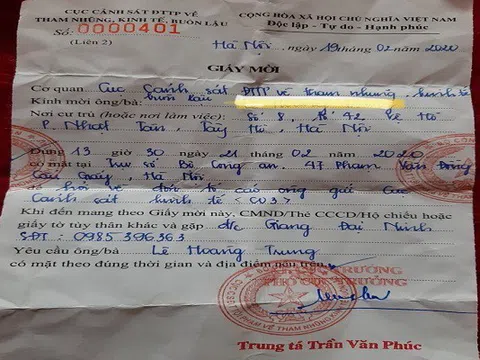 CỤC CẢNH SÁT ĐTTP VỀ
THAM NHŨNG, KINH TẾ, BUÔN LẬU
Số: 0000401
(Liên 2)
CỘNG HÒA XÃ HỘI CHỦ NGHĨA VIỆT NAM
Độc lập - Tự do - Hạnh phúc
Hà Nội, ngày 19 tháng 02 năm 2020
GIẤY MỜI
Cơ quan Cục Cảnh sát ĐTTP về tham nhũng, kinh tế
buôn lậu
Kính mời ông/bà:
Nơi cư trú (hoặc nơi làm việc): Số 8,
P. Nhật Tân, Tây Hồ, Hà Nội
Đúng 13 giờ 30 ngày 21 tháng 02 năm 2020
có mặt tại Trụ sở Bộ Công an. 47 Phạm Văn Đồng
Cầu Giấy, Hà Nội
để hỏi về đơn tố cáo ông gửi Cục
Cảnh sát kinh tế (C03)
Khi đến mang theo Giấy mời này, CMND/Thẻ CCCD/Hộ chiếu hoặc
giấy tờ tùy thân khác và gặp đ/c Giang Đại Ninh
SĐT: 0985396363
Yêu cầu ông/bà Lê Hoàng Trung
có mặt theo đúng thời gian và địa điểm nêu trên.
TRƯỞNG
PHÓ CỤC TRƯỞNG
Trung tá Trần Văn Phúc